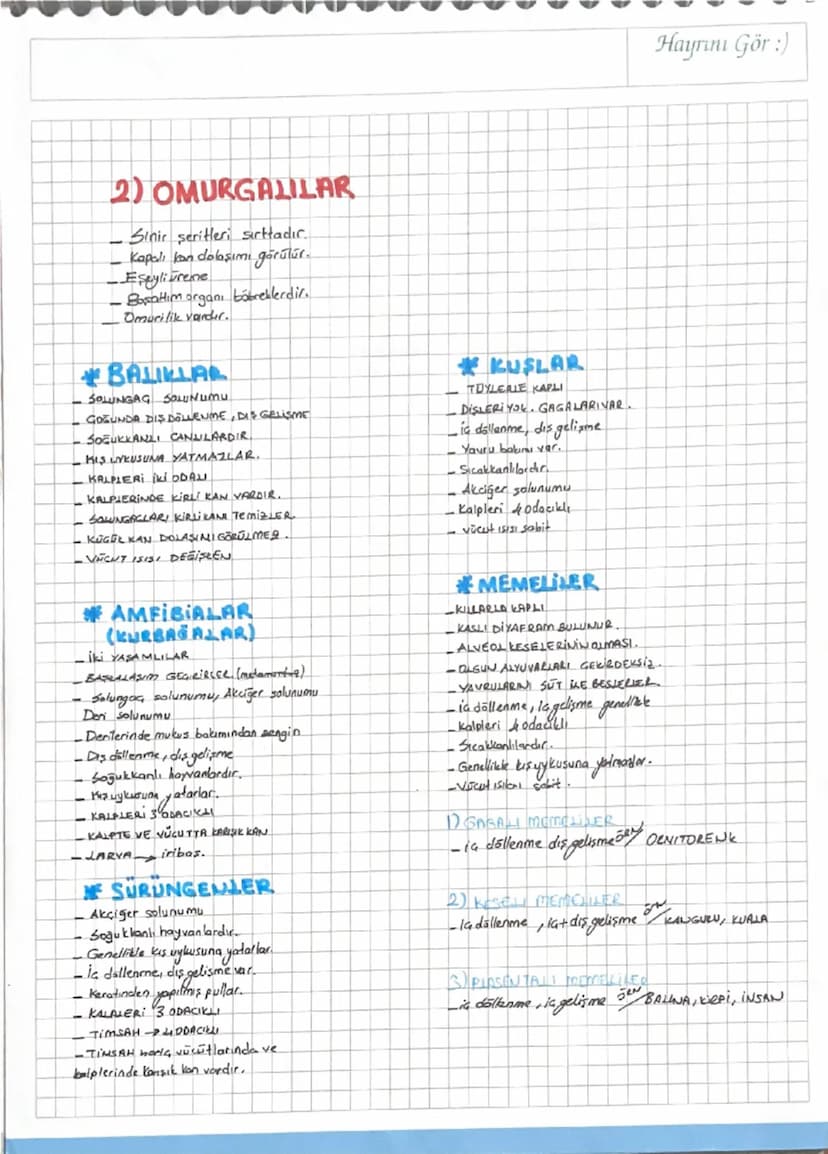 Hayrını Gör :)
2) OMURGALILAR
_ Sinir şeritleri sırttadır.
_ Kapalı kan dolaşımı görülür.
_ Eşeyli üreme
_ Boşaltım organı böbreklerdir.
_ Omurilik vardır.
* BALIKLAR
_ SOLUNGAÇ SOLUNUMU
_ ÇOĞUNDA DIŞ DÖLLENME, DIŞ GELİŞME
_ SOĞUKKANLI CANLILARDIR.
_ KIŞ UYKUSUNA YATMAZLAR.
_ KALPLERİ İKİ ODALI
_ KALPLERİNDE KİRLİ KAN VARDIR.
_ SOLUNGAÇLARI KİRLİ KANI TEMİZLER
_ KÜÇÜK KAN DOLAŞIMI GÖRÜLMEZ.
_ VÜCUT ISISI DEĞİŞKEN
* AMFİBİALAR
(KURBAĞALAR)
_ İKİ YAŞAMLILAR
_ BAŞKALAŞIM GEÇİRİRLER. (metamorfoz)
_ Solungaç solunumu, Akciğer solunumu
Deri solunumu
_ Derilerinde mukus bakımından zengin
_ Dış döllenme, dış gelişme
_ Soğukkanlı hayvanlardır.
_ Kış uykusuna yatarlar.
_ KALPLERİ 3 ODACIKLI
_ KALPTE VE VÜCUTTA KARIŞIK KAN
_ LARVA → iribaş.
* SÜRÜNGENLER
_ Akciğer solunumu
_ Soğukkanlı hayvanlardır.
_ Genellikle kış uykusuna yatarlar.
_ İç döllenme, dış gelişme var.
_ Keratinden yapılmış pullar.
_ KALPLERİ 3 ODACIKLI
_ TİMSAH → 4 ODACIKLI
_ TİMSAH hariç vücutlarında ve
kalplerinde karışık kan vardır.
* KUŞLAR
_ TÜYLERLE KAPLI
_ DİŞLERİ YOK. GAGALARI VAR.
_ iç döllenme, dış gelişme
_ Yavru bakımı var.
_ Sıcakkanlılardır.
_ Akciğer solunumu
_ Kalpleri 4 odacıklı
_ vücut ısısı sabit
* MEMELİLER
_ KILLARLA KAPLI
_ KASLI DİYAFRAM BULUNUR.
_ ALVEOL KESELERİNİN OLMASI.
_ OLGUN ALYUVARLARI ÇEKİRDEKSİZ.
_ YAVRULARINI SÜT İLE BESLERLER.
_ iç döllenme, iç gelişme genellikle
_ Kalpleri 4 odacıklı
_ Sıcakkanlılardır.
_ Genellikle kış uykusuna yatmazlar.
_ Vücut ısıları sabit.
1) GAGALI MEMELİLER
_ iç döllenme dış gelişme ÖRN/ ORNİTORENK
2) KESELİ MEMELİLER
_ iç döllenme, iç+dış gelişme ÖRN/ KANGURU, KUALA
3) PLASENTALI MEMELİLER
_ iç döllenme, iç gelişme ÖRN/ BALİNA, KİRPİ, İNSAN